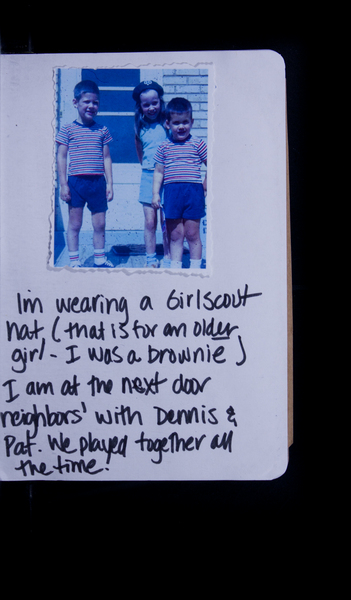 I'm wearing a Girlscout
hat (that is for an older
girl - I was a brownie)
I am at the next door
neighbors' with Dennis &
Pat. We played together all
the time!